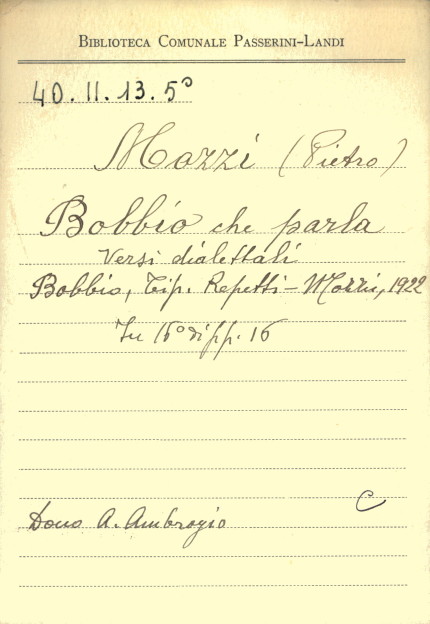 BIBLIOTECA COMUNALE PASSERINI-LANDI
40.II.13.5°
Mozzi (Pietro)
Bobbio che parla
Versi dialettali
Bobbio, Tip. Repetti-Mozzi, 1922
In 16° di pp. 16
C
Dono A. Ambrogio